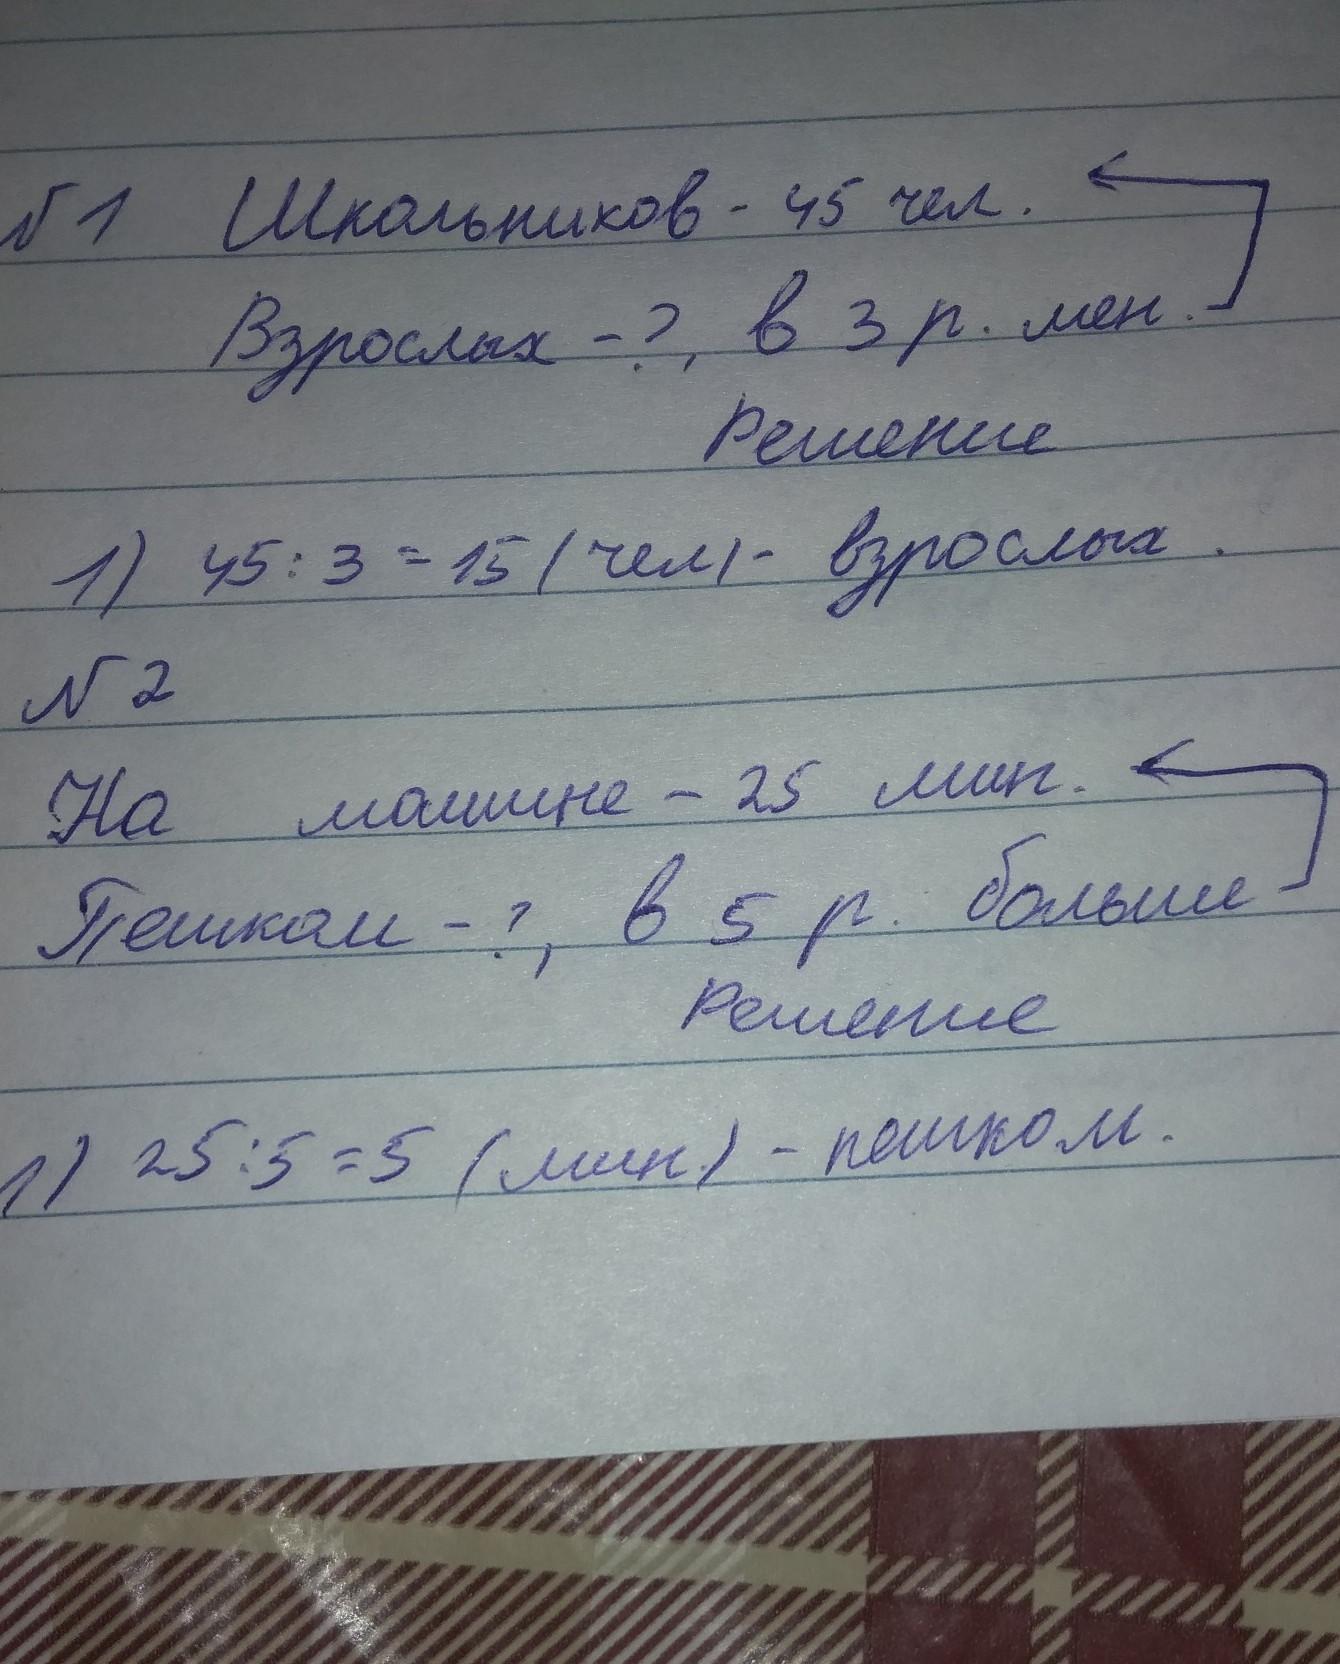 №1 Школьников - 45 чел.
Взрослых - ?, в 3 р. мен.
Решение
1) 45 : 3 = 15 (чел) - взрослых.
№2
На машине - 25 мин.
Пешком - ?, в 5 р. больше
Решение
1) 25 : 5 = 5 (мин.) - пешком.